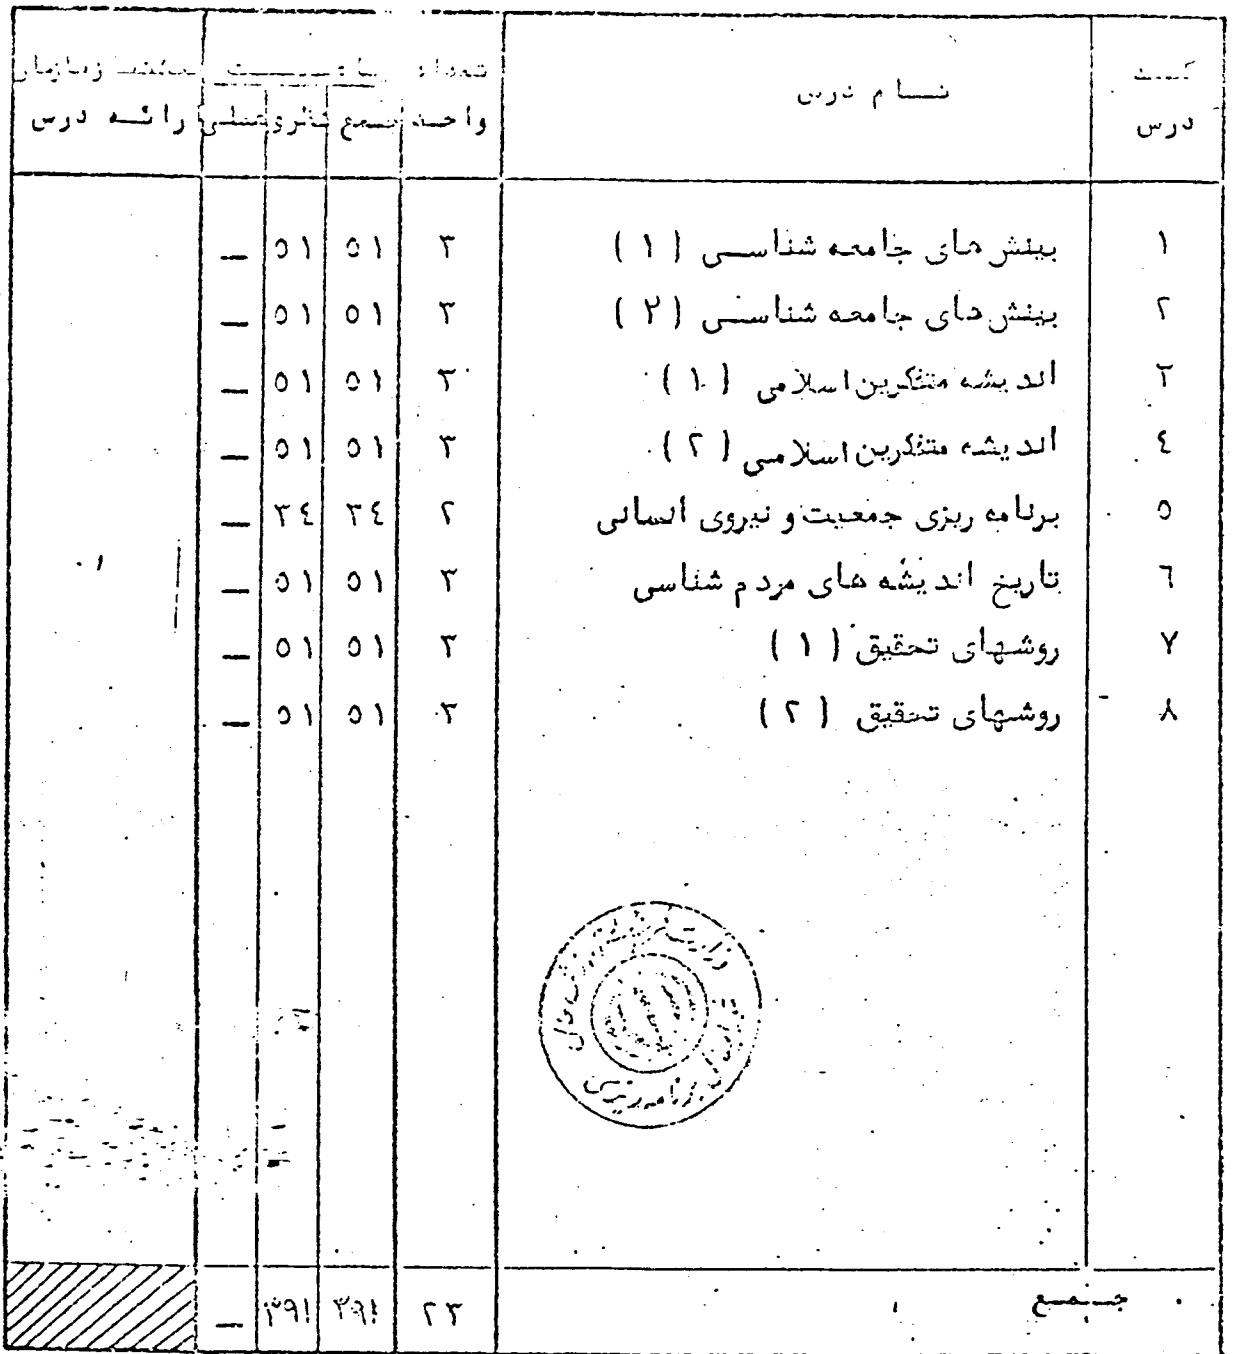 کد درس | نام درس | تعداد واحد | ساعت: جمع | نظری | عملی | پیشنیاز زمان ارائه درس
۱ | بینش های جامعه شناسی ( ۱ ) | ۳ | ۵۱ | ۵۱ | —
۲ | بینش های جامعه شناسی ( ۲ ) | ۳ | ۵۱ | ۵۱ | —
۳ | اندیشه متفکرین اسلامی ( ۱ ) | ۳ | ۵۱ | ۵۱ | —
٤ | اندیشه متفکرین اسلامی ( ۲ ) | ۳ | ۵۱ | ۵۱ | —
۵ | برنامه ریزی جمعیت و نیروی انسانی | ۲ | ۳٤ | ۳٤ | —
٦ | تاریخ اندیشه های مردم شناسی | ۳ | ۵۱ | ۵۱ | —
۷ | روشهای تحقیق ( ۱ ) | ۳ | ۵۱ | ۵۱ | —
۸ | روشهای تحقیق ( ۲ ) | ۳ | ۵۱ | ۵۱ | —
برنامه ریزی
جمع | ۲۳ | ۳۹۱ | ۳۹۱ | —